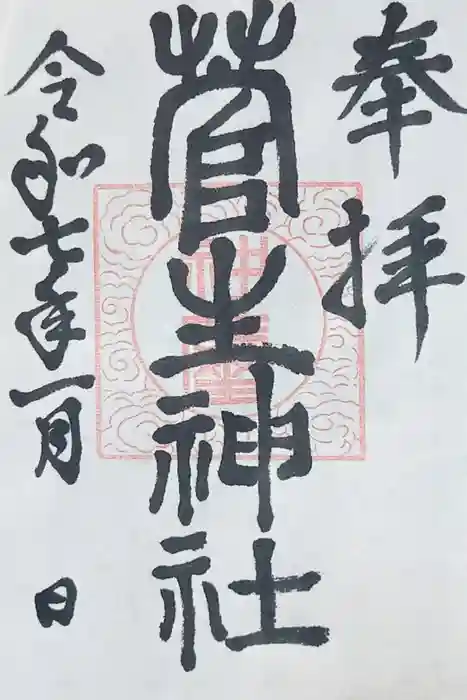 奉拝
菅生神社
令和七年一月 日